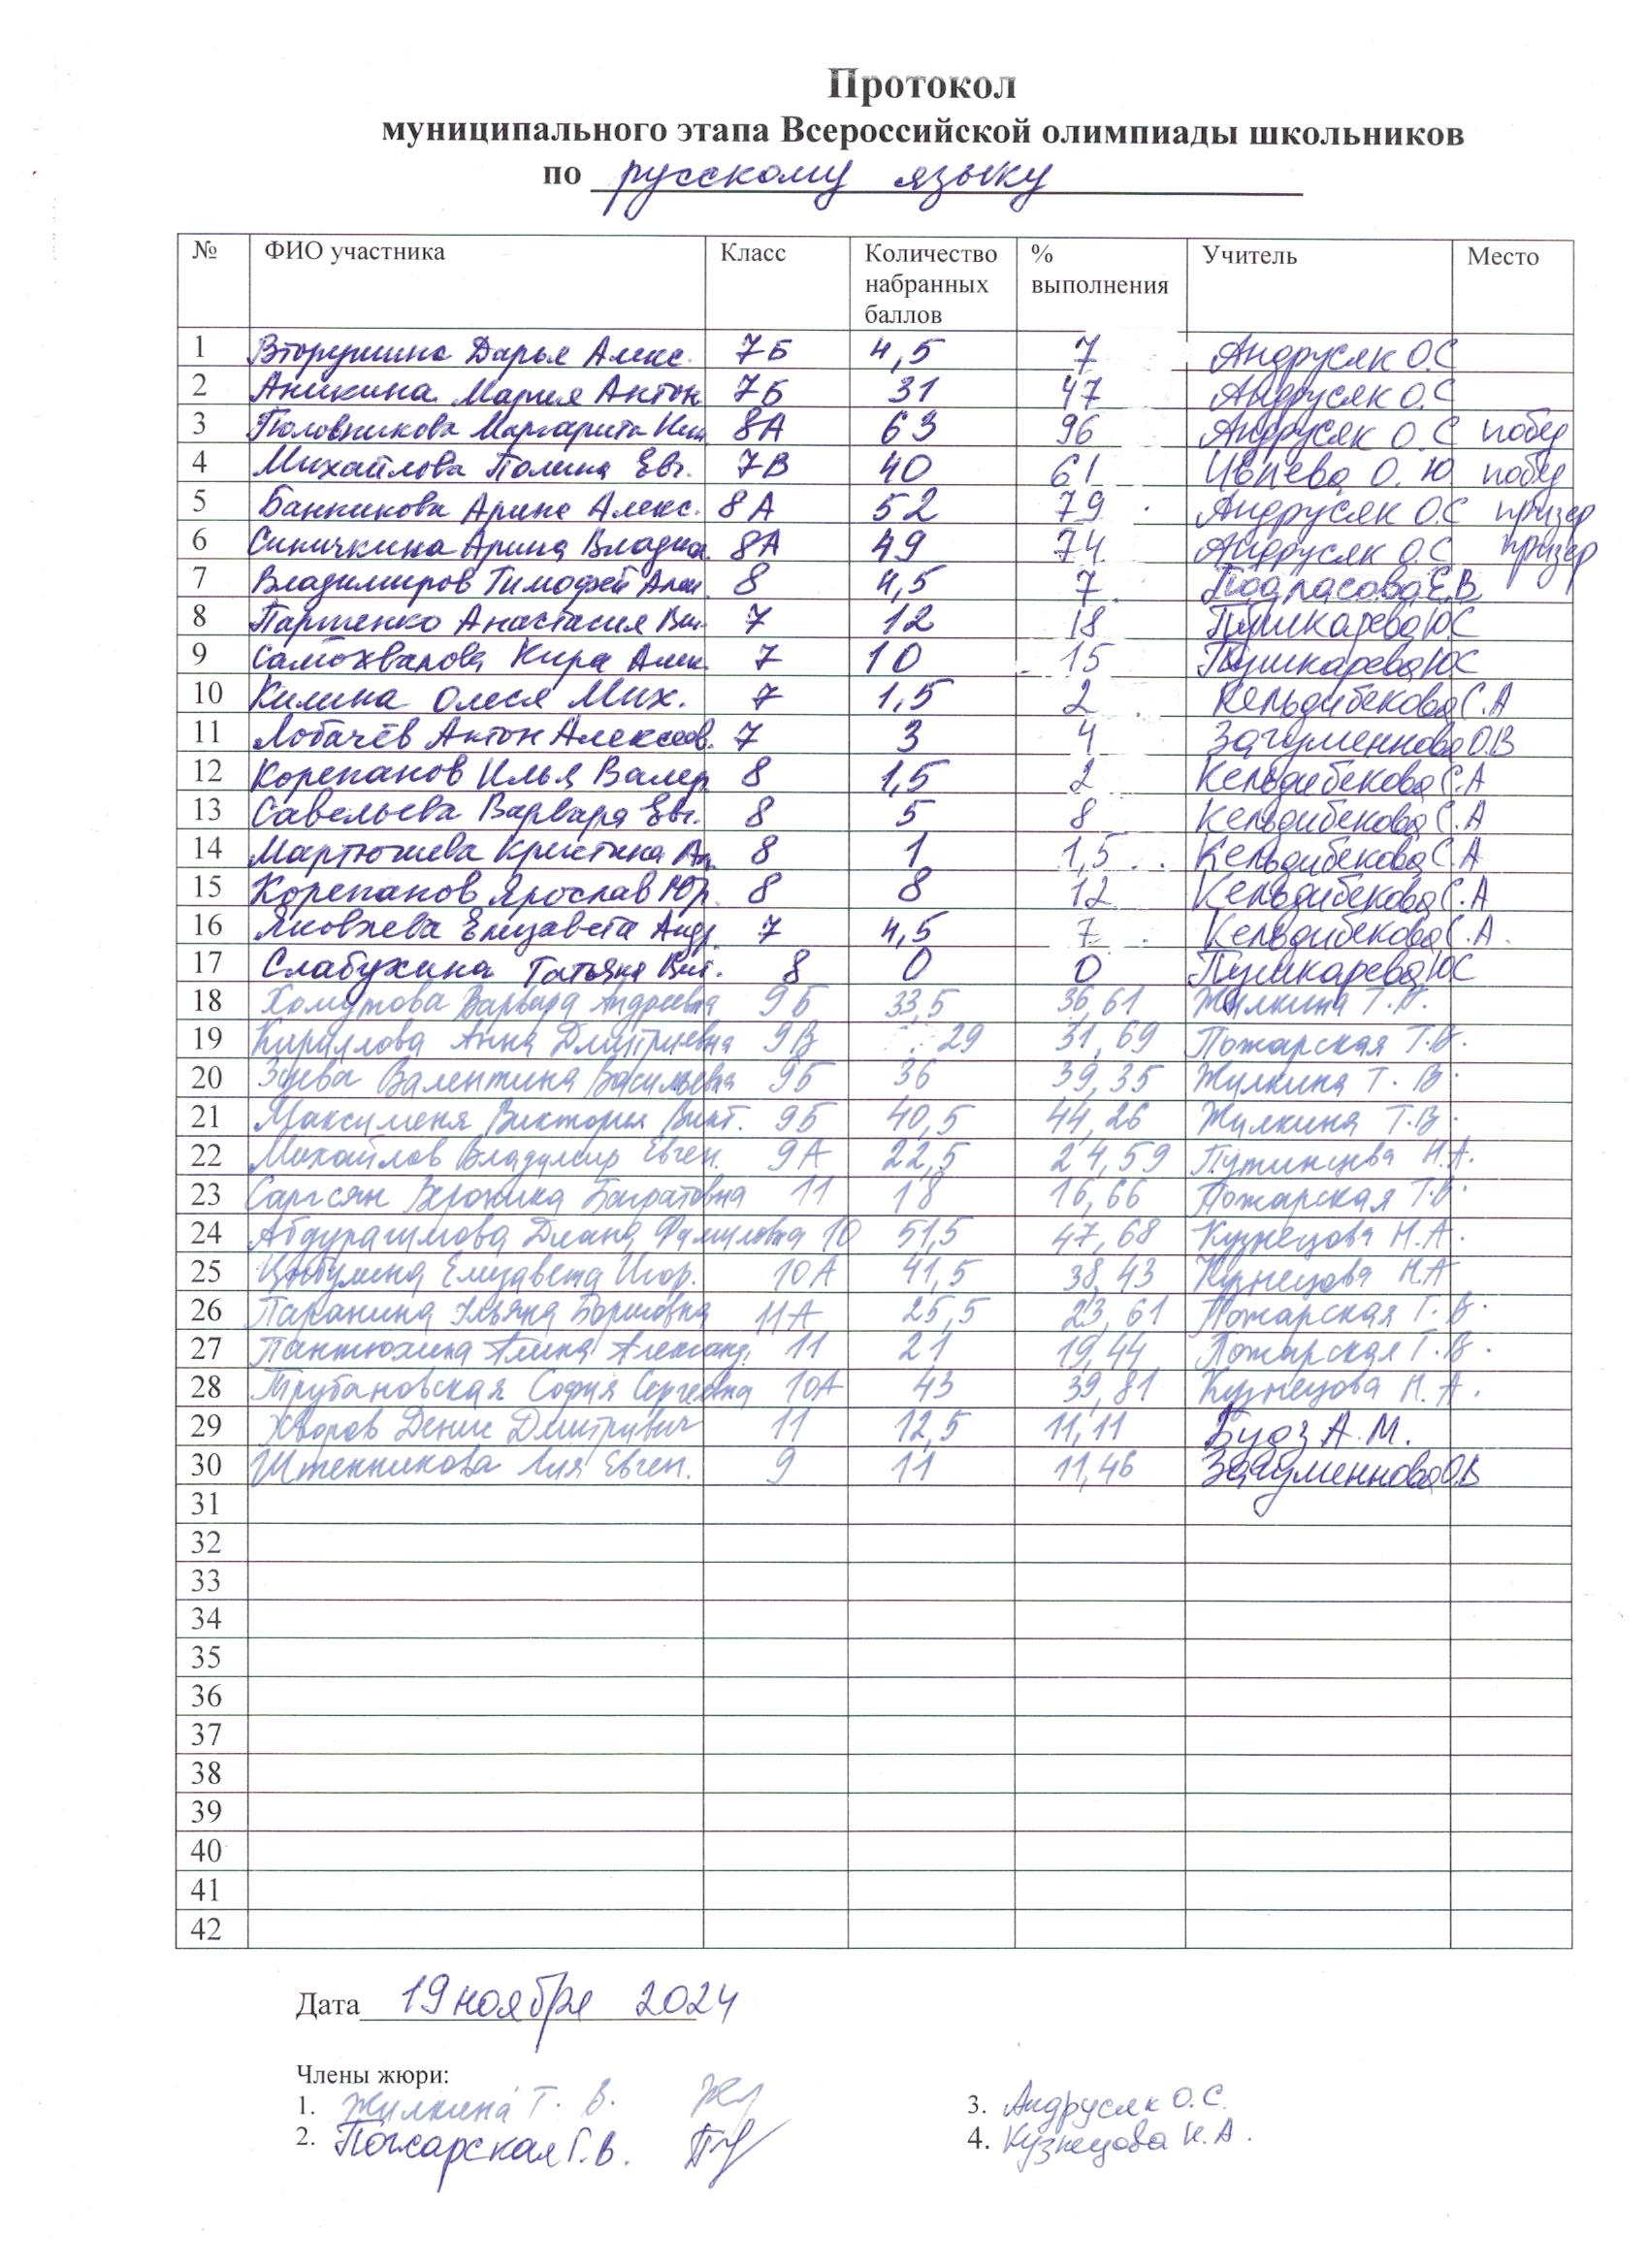 Протокол
муниципального этапа Всероссийской олимпиады школьников
по русскому языку
№ ФИО участника Класс Количество набранных баллов % выполнения Учитель Место
1 Вторушина Дарья Алекс. 7Б 4,5 7 Андрусяк О.С
2 Аникина Мария Антон 7Б 31 47 Андрусяк О.С
3 Половникова Маргарита 8А 63 96 Андрусяк О.С побед
4 Михайлова Полина Евг. 7В 40 61 Ивнева О.Ю побед
5 Банникова Арина Алекс. 8А 52 79 Андрусяк О.С призер
6 Синичкина Арина Владим. 8А 49 74 Андрусяк О.С призер
7 Владимиров Тимофей 8 4,5 7 Подласова Е.В.
8 Паршенко Анастасия 7 12 18 Пушкарева Ю.С
9 Самохвалова Кира Алек. 7 10 15 Пушкарева Ю.С
10 Килина Олеся Мих. 7 1,5 2 Кельдибекова С.А
11 Лобачёв Антон Алексеев. 7 3 4 Загуменнова О.В
12 Корепанов Илья Валер. 8 1,5 2 Кельдибекова С.А
13 Савельева Варвара Евг. 8 5 8 Кельдибекова С.А
14 Мартюшева Кристина 8 1 1,5 Кельдибекова С.А
15 Корепанов Ярослав Юр. 8 8 12 Кельдибекова С.А
16 Яковлева Елизавета Андр. 7 4,5 7 Кельдибекова С.А.
17 Слабухина Татьяна Вит. 8 0 0 Пушкарева Ю.С
18 Хомутова Варвара Андреевна 9Б 33,5 36,61 Жилкина Т.В.
19 Кириллова Анна Дмитриевна 9В 29 31,69 Пожарская Т.В.
20 Зуева Валентина Васильевна 9Б 36 39,35 Жилкина Т.В.
21 Максименя Виктория Викт. 9Б 40,5 44,26 Жилкина Т.В.
22 Михайлов Владимир Евген. 9А 22,5 24,59 Путинцева Н.А.
23 Саргсян Вероника Багратовна 11 18 16,66 Пожарская Т.В.
24 Абдурагимова Диана 10 51,5 47,68 Кузнецова Н.А.
25 Цыбулина Елизавета Игор. 10А 41,5 38,43 Кузнецова Н.А
26 Паранина Ульяна Борисовна 11А 25,5 23,61 Пожарская Г.В.
27 Пантюхина Алина Александ. 11 21 19,44 Пожарская Г.В.
28 Трубановская София Сергеевна 10А 43 39,81 Кузнецова Н.А.
29 Хворов Денис Дмитриевич 11 12,5 11,11 Будз А.М.
30 Штенникова Лия Евген. 9 11 11,46 Загуменнова О.В
31
32
33
34
35
36
37
38
39
40
41
42
Дата 19 ноября 2024
Члены жюри:
1. Жилкина Т. В.
2. Пожарская Г.В.
3. Андрусяк О.С.
4. Кузнецова Н.А.